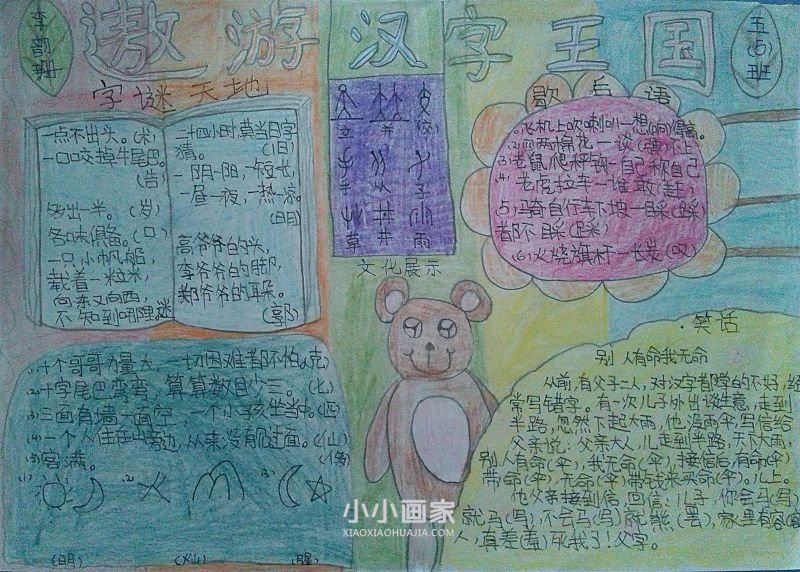 李
遨游汉字王国
五(5)班
字谜天地
一点不出头。(术)
一口咬掉牛尾巴。
(告)
多出一半。(岁)
各味俱备。(口)
一只小帆船,
载着一粒米,
向东又向西,
不知到哪哩。迷
二十四小时莫当日字
猜。(旧)
一阴一阳,一短一长,
一昼一夜,一热一凉。
(明)
高爷爷的头,
李爷爷的脚,
郑爷爷的耳朵。
(郭)
立 并 (交)
手 从 子
草 井 雨
文化展示
歇后语
(1)飞机上吹喇叭一想(响)得高。
(2)四两棉花一谈(弹)不上
(3)老鼠爬秤钩一自己称自己
(4)老虎拉车一谁敢(赶)
(5)骑自行车下坡一目睬(踩)
都不目睬(踩)
(6)火烧旗杆一长炭(叹)
(1)十个哥哥力量大,一切困难都不怕。(克)
(2)十字尾巴弯弯,算算数目少三。(七)
(3)三面有墙一面空,一个小孩坐当中。(四)
(4)一个人住在山旁边,从来没有见过面。(仙)
(5)客满。(侈)
(1) (2) (3)
(明) (灿) (腥)
·笑话
别人有命我无命
从前,有父子二人,对汉字都学的不好,经
常写错字。有一次儿子外出谈生意,走到
半路,忽然下起大雨,他没两伞,写信给
父亲说:父亲大人,儿走到半路,天下大雨,
别人有命(伞),我无命(伞),接信后,有命(伞)
带命(伞),无命(伞)带钱来买命(伞)。儿上。
他父亲接到信,回信:儿子,你会马(写)
就马(写),不会马(写)就熊(罢),家里有容
人,真差(羞)死我了!父字。
小小画家
XIAOXIAOHUAJIA.COM